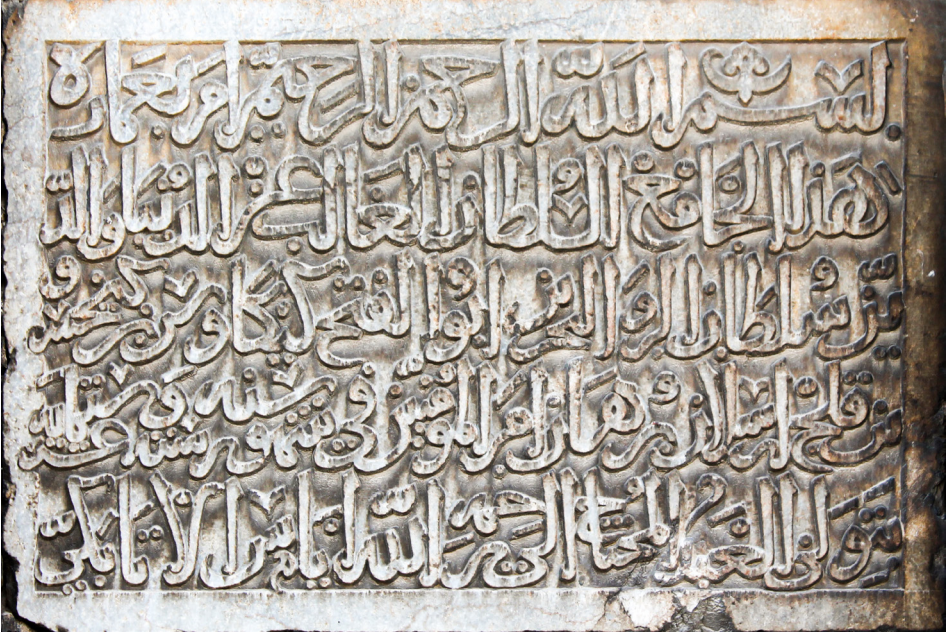 بسم الله الرحمن الرحيم امر بعمارة
هذا الجامع السلطان الغالب عز الدنيا والد
ين سلطان البر والبحر ابو الفتح كيكاوس بن كيخسرو
بن قلج ارسلان برهان امير المؤمنين في شهور سنه ستة عشر وستمايه
بتولي العبد المحتاج الى رحمة الله اياس الاتابكي